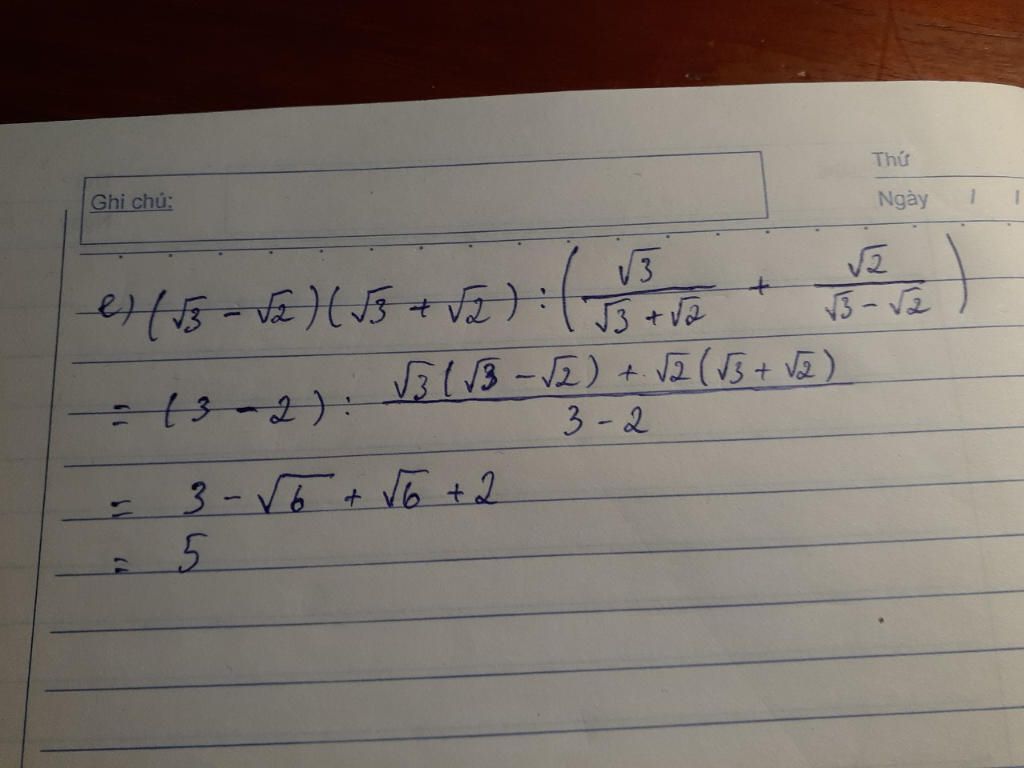 Thứ
Ghi chú:
Ngày / /
e) (√3 - √2)(√3 + √2) : (√3/(√3 + √2) + √2/(√3 - √2))
= (3 - 2) : (√3(√3 - √2) + √2(√3 + √2))/(3 - 2)
= 3 - √6 + √6 + 2
= 5